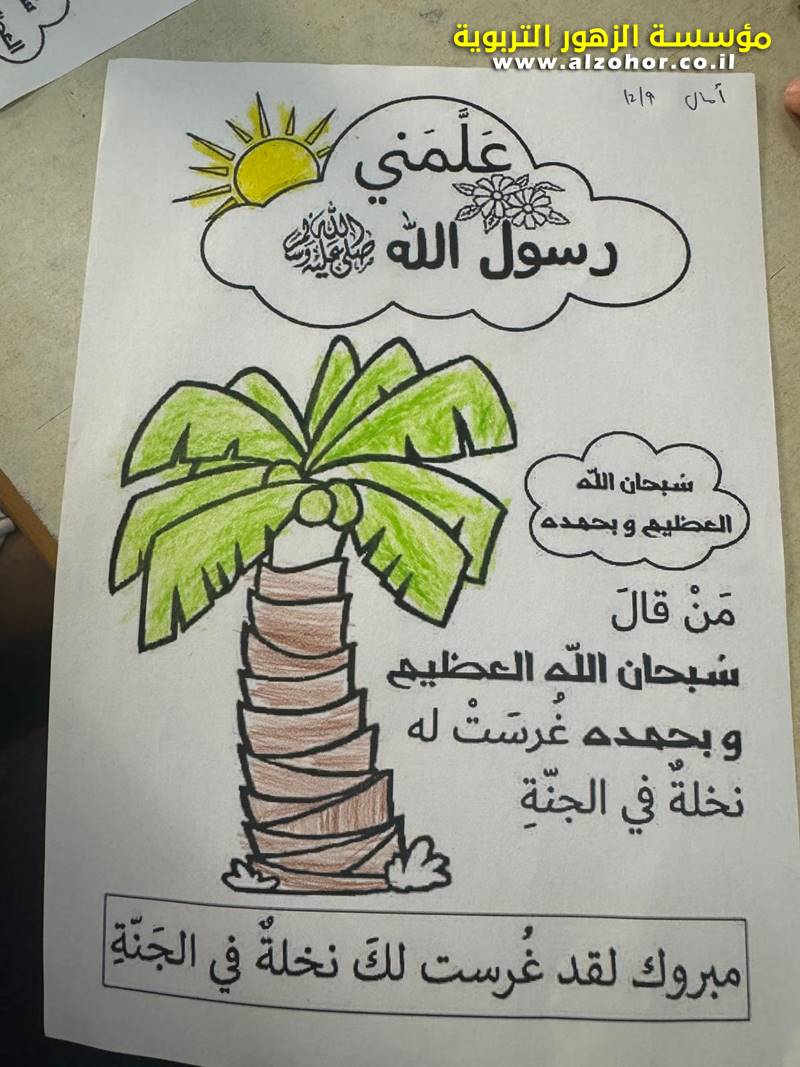 مؤسسة الزهور التربوية
www.alzohor.co.il
أمال 12/9
عَلَّمَني
رسول الله ﷺ
سُبحان الله
العظيم و بحمده
مَنْ قالَ
سُبحان الله العظيم
و بحمده غُرسَتْ له
نخلةٌ في الجنّةِ
مبروك لقد غُرست لكَ نخلةٌ في الجَنّةِ